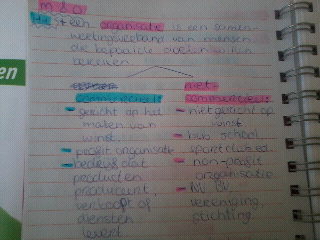 m & o
H1 § 1 een organisatie is een samen-
werkingsverband van mensen
die bepaalde doelen willen
bereiken
commercieel
- gericht op het
maken van
winst.
- profit organisatie
- bedrijf dat
producten
produceert,
verkoopt of
diensten
levert
niet-
commercieel
- niet gericht op
winst
- bijv. school
sportclub ed.
- non-profit
organisatie
vereniging,
stichting
en